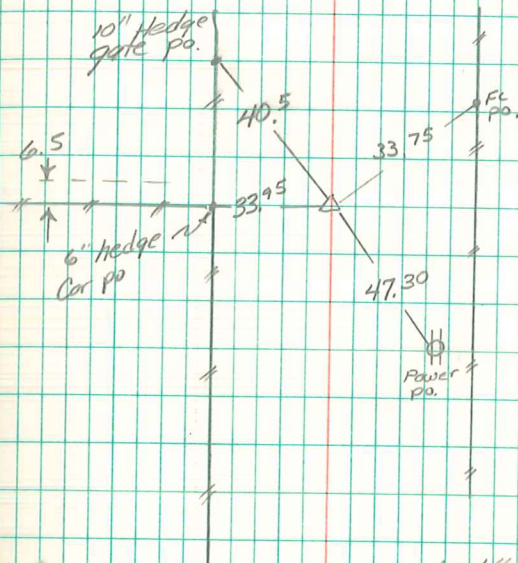 10" Hedge
gate po.
40.5
Fc
po.
33.75
6.5
33.95
6" hedge
Cor po
47.30
Power
po.